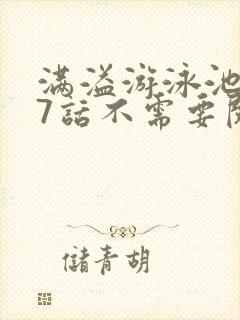 满溢游泳池
7話不需要
儲青胡